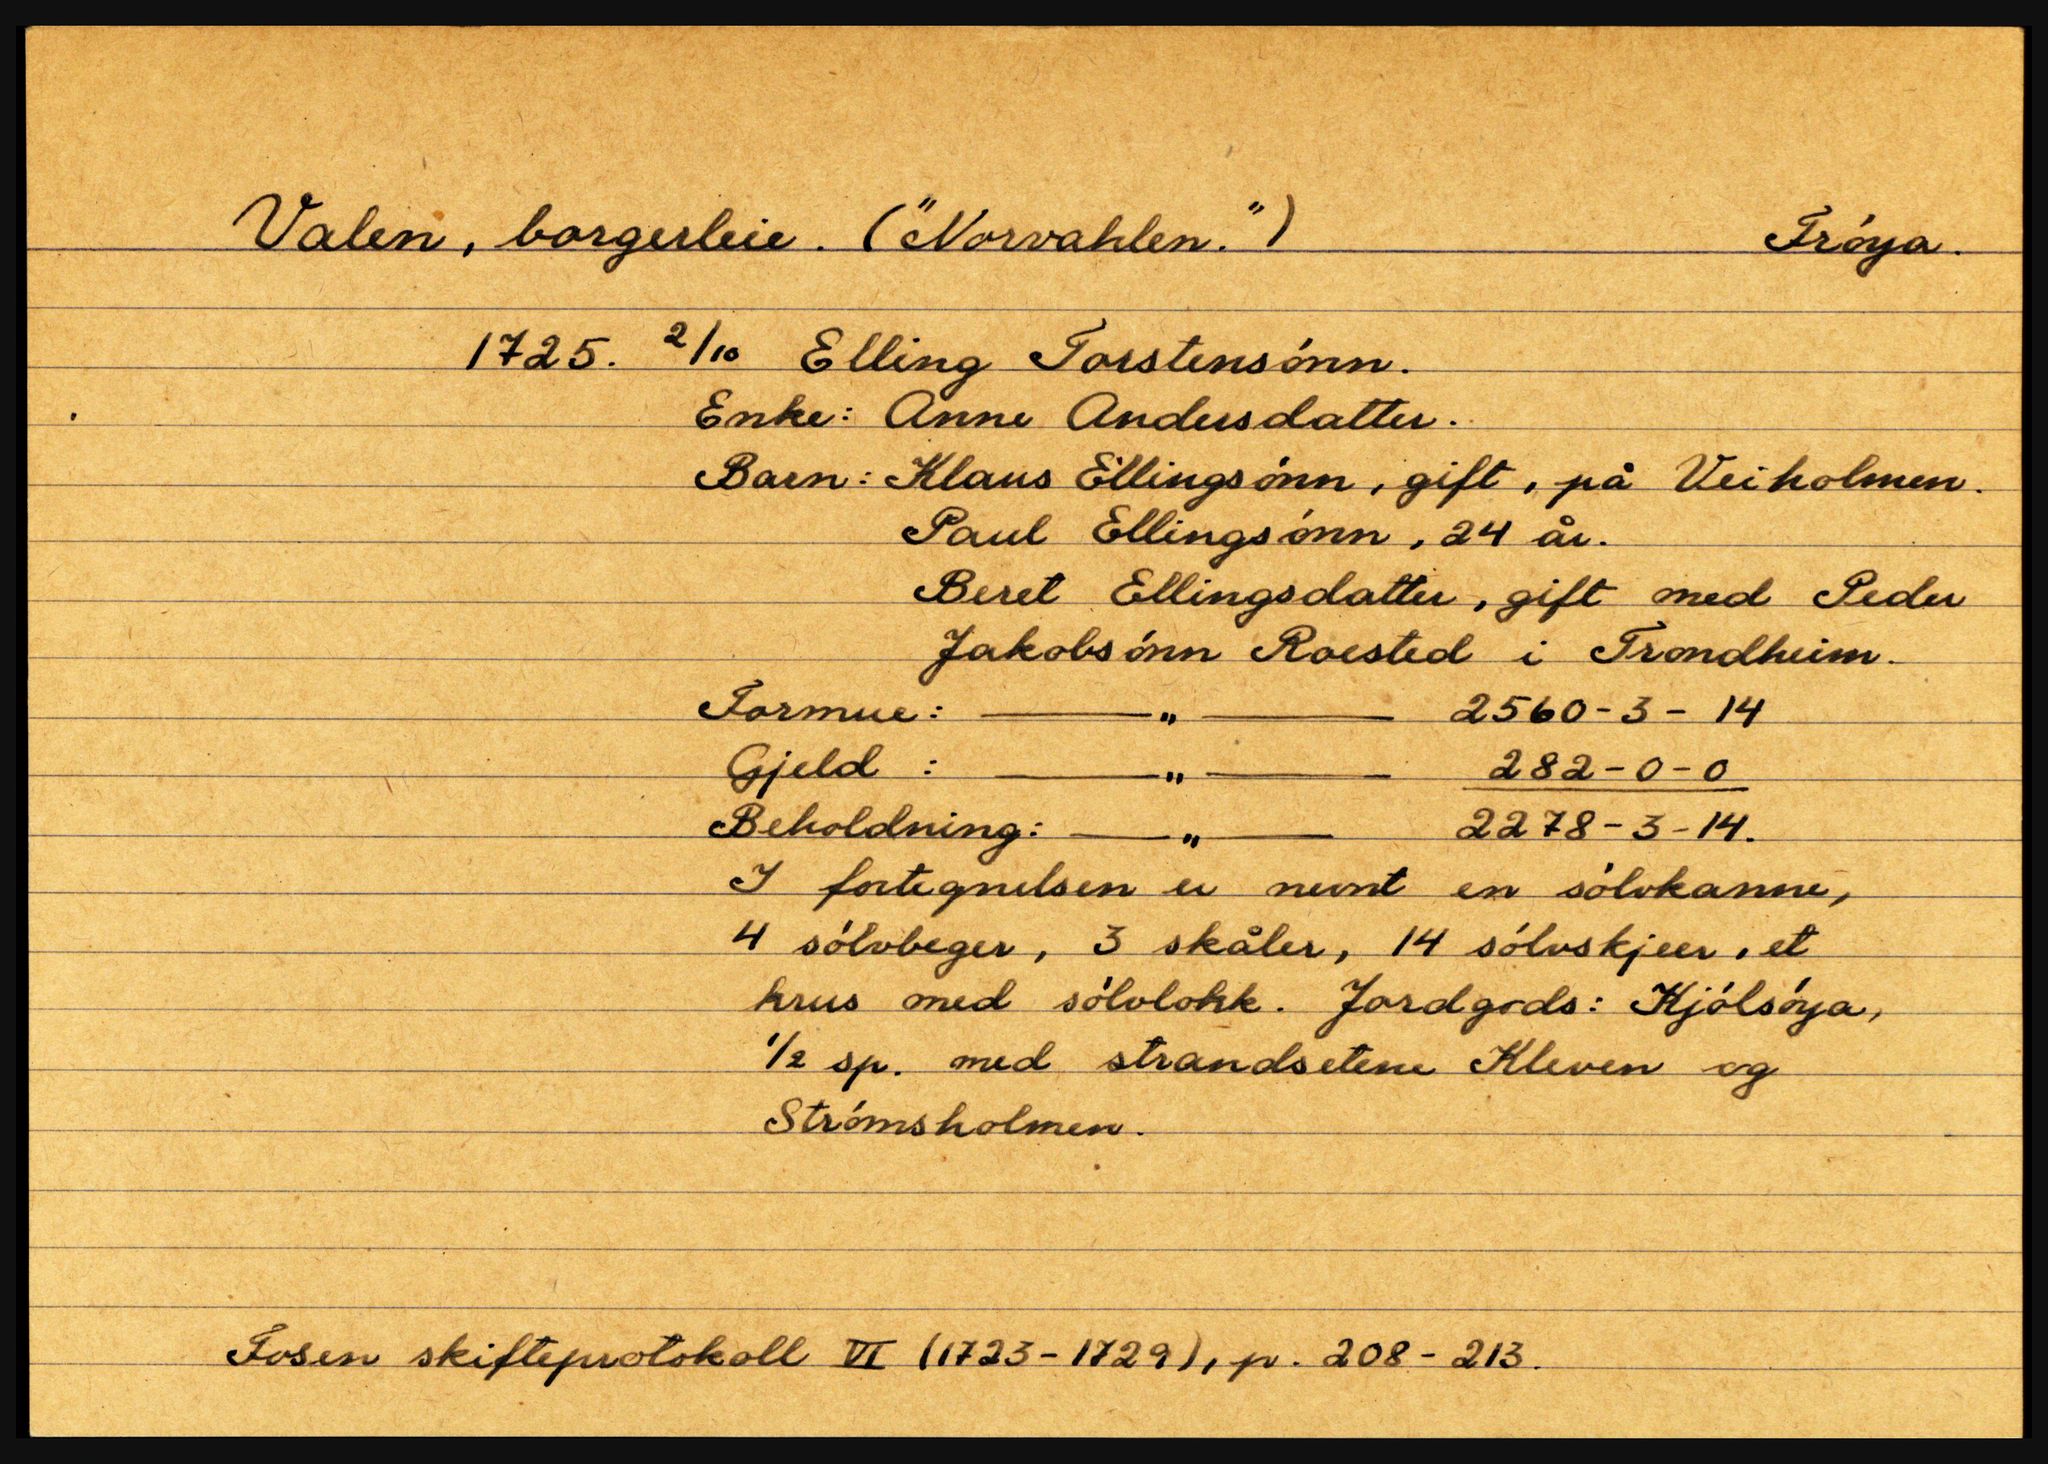 Valen, borgerleie. ("Norvahlen.") Fróya.
1725. 2/10 Elling Torstensónn.
Enke: Anne Andersdatter.
Barn: Klaus Ellingsónn, gift, på Veiholmen.
Paul Ellingsónn, 24 år.
Beret Ellingsdatter, gift med Peder
Jakobsónn Roested i Trondheim.
Formue: — " — 2560-3-14
Gjeld : — " — 282-0-0
Beholdning: — " — 2278-3-14.
I fortegnelsen er nevnt en sólvkanne,
4 sólvbeger, 3 skåler, 14 sólvskjeer, et
krus med sólvlokk. Jordgods: Kjólsóya,
1/2 sp. med strandsetene Kleven og
Strómsholmen.
Fosen skifteprotokoll VI (1723-1729), p. 208-213.